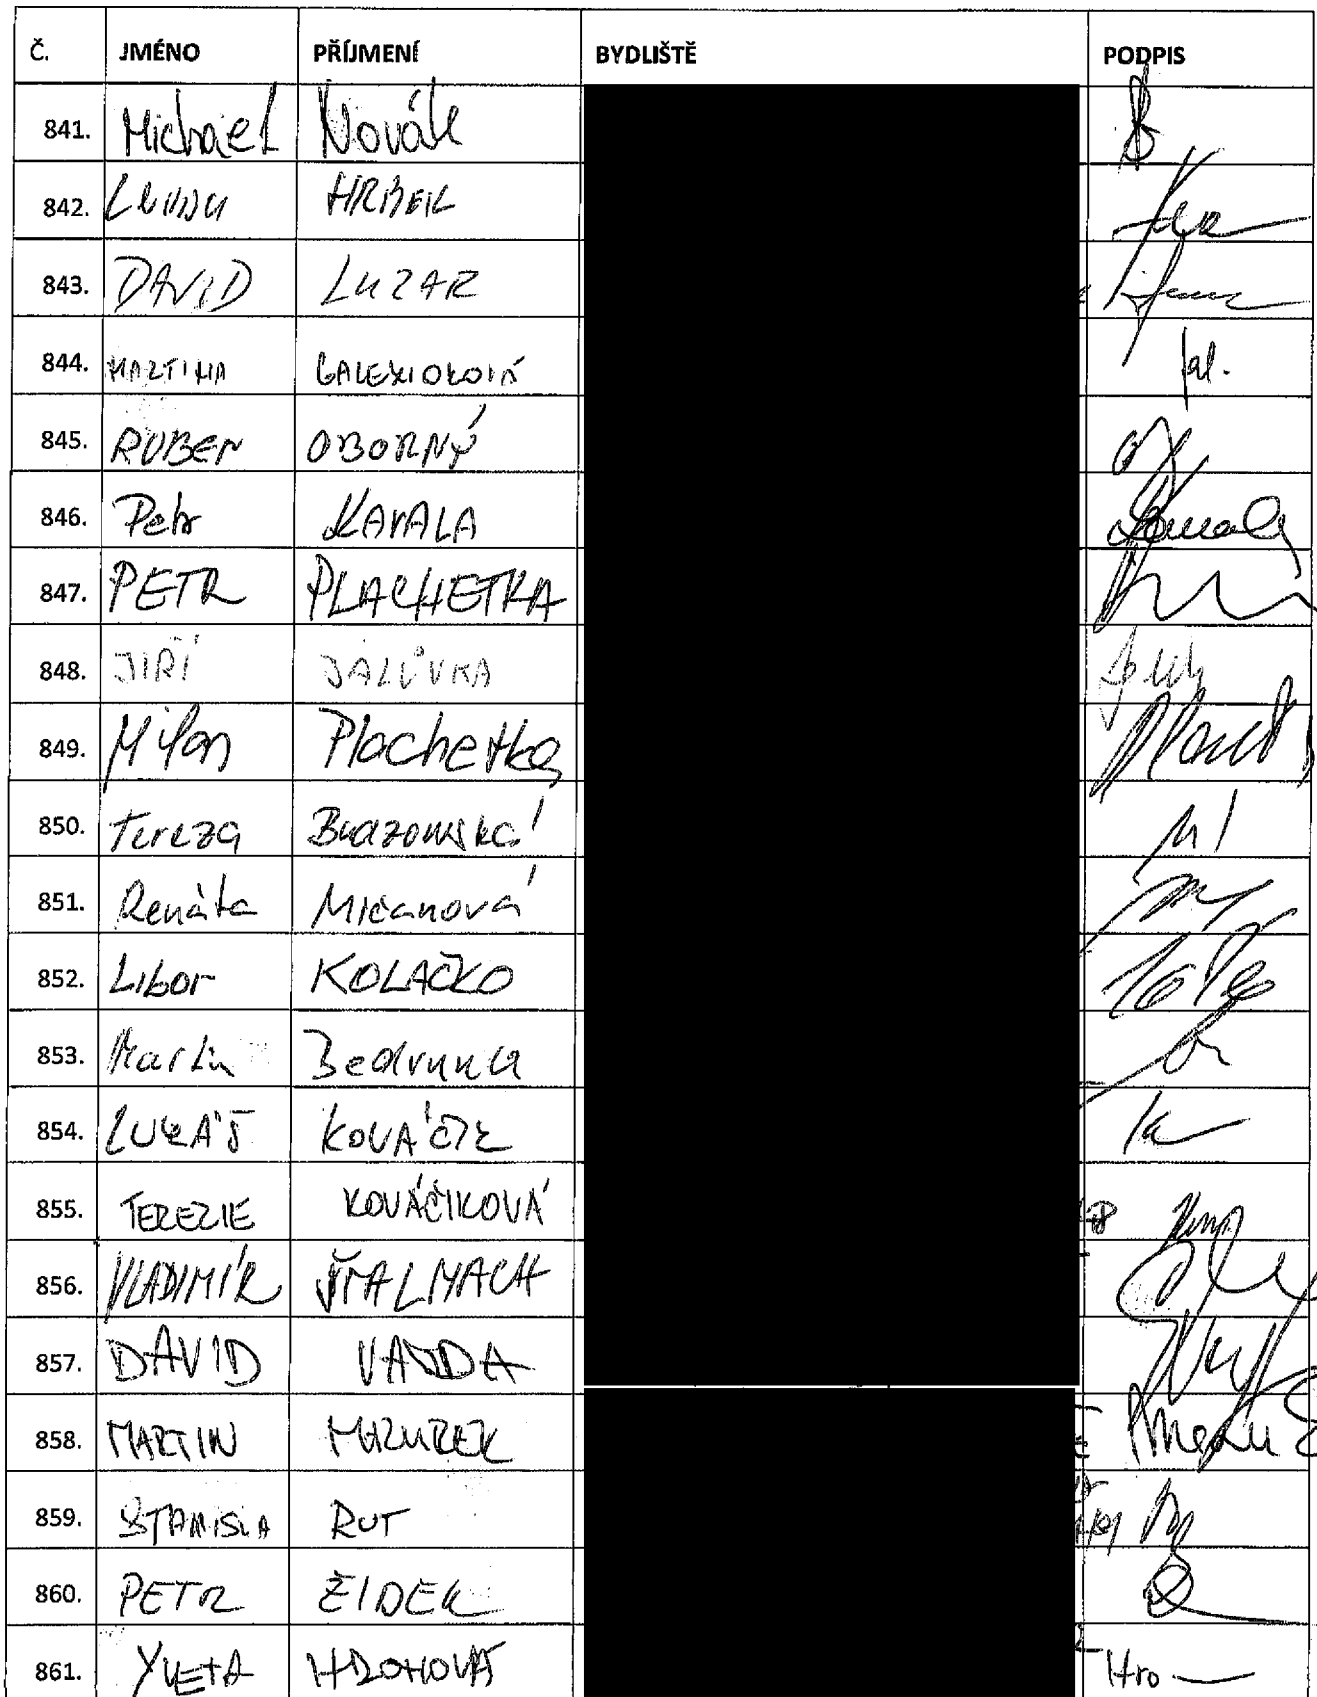 Č. JMÉNO PŘÍJMENÍ BYDLIŠTĚ PODPIS
841. Michael Novák
842. HRBEK
843. DAVID LUZAR
844. MARTINA
845. RUBEN OBORNÝ
846. Petr KAVALA
847. PETR PLACHETKA
848. JIŘÍ JALŮVKA
849. Milan Plachetka
850. Tereza
851. Renáta Mičanová
852. Libor KOLAČKO
853. Martin Bedrunka
854. LUKÁŠ KOVÁČIK
855. TEREZIE KOVÁČIKOVÁ
856. VLADIMÍR ŠTALMACH
857. DAVID VAJDA
858. MARTIN MAZUREK
859. STANISLA RUT
860. PETR ŽIDEK
861. YVETA Hro